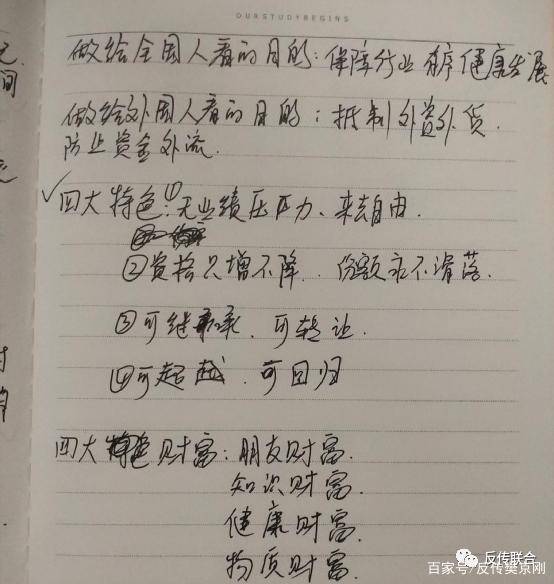 OURSTUDYBEGINS
做给全国人看的目的：保障行业有序健康发展
做给外国人看的目的：抵制外资外货.
防止资金外流.
✓四大特色：①无业绩压力、来去自由.
②资格只增不降. 份额永不滑落.
③可继承. 可转让.
④可超越. 可回归
四大 财富：朋友财富.
知识财富.
健康财富.
物质财富.
间
反传联合
百家号/反传樊京刚